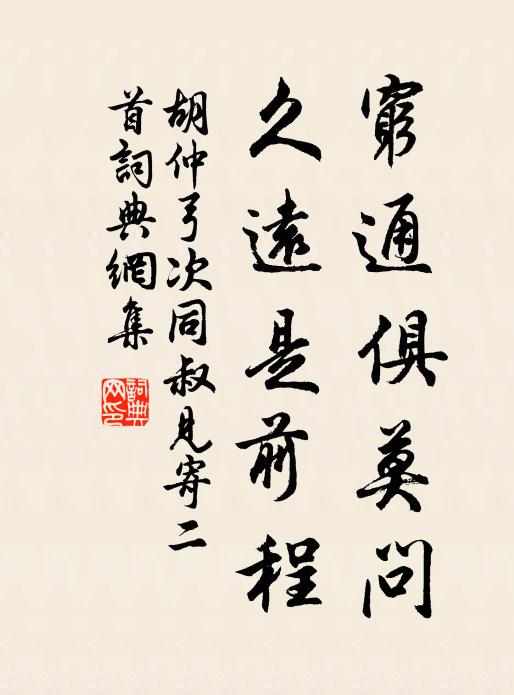 窮通俱莫問
久遠是前程
胡仲弓次同叔見寄二
首詞典網集
詞典網印